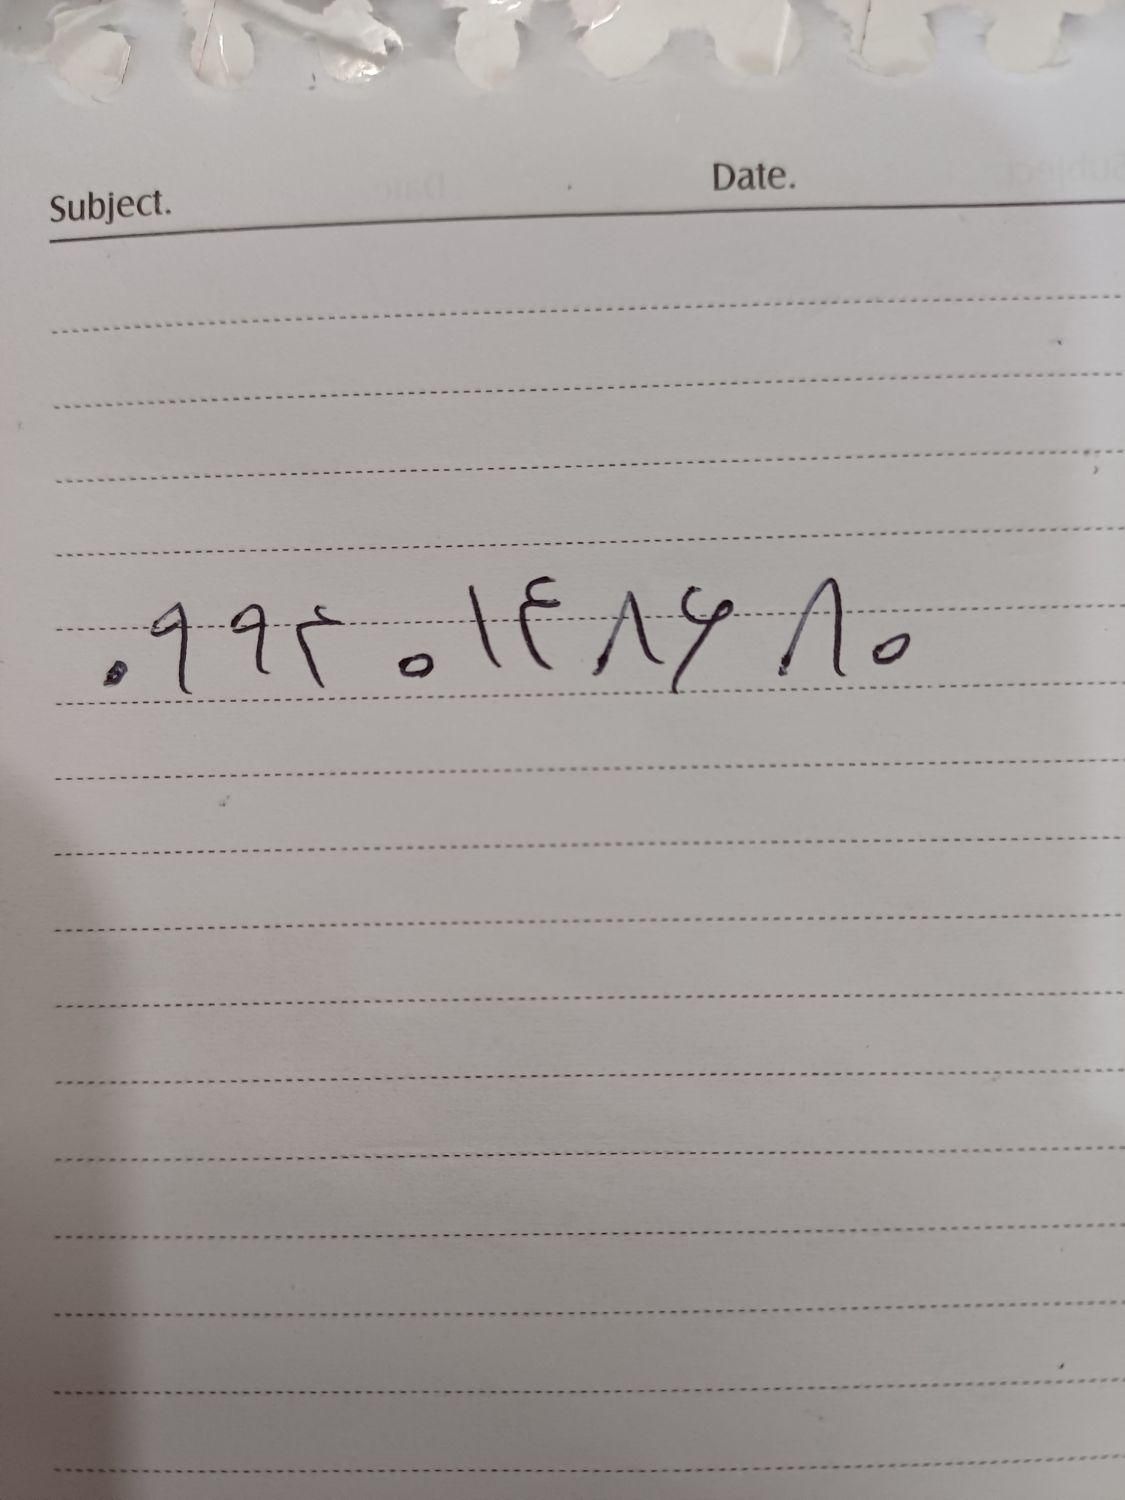 Subject. Date.
۰۹۹۲۰۱۴۸۶۸۰